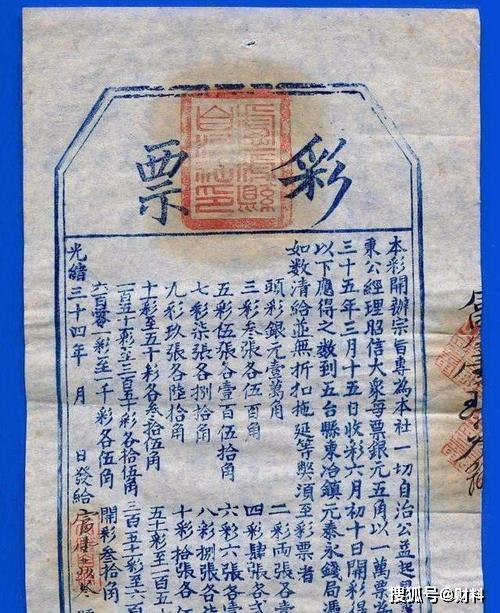 彩票
本彩開辦宗旨專為本社一切自治公益起見
東公經理昭信大衆每票銀元五角以一萬票為
三十五年三月十五日收彩六月初十日開彩得
以下應得之数到五台縣東冶鎮元泰永錢局憑
如数清給並無折扣拖延等獘須至彩票者
頭彩銀元壹萬角
二彩兩張各
三彩叁張各伍百角
四彩肆張各弍
五彩伍張各壹百伍拾角
六彩六張各
七彩柒張各捌拾角
八彩捌張各
九彩玖張各陸拾角
十彩拾張各
十一彩至五十彩各叁拾伍角
五十一彩至一百五
一百五十彩至三百五十彩各拾伍角
三百五十彩至六百
六百零一彩至一千彩各五角
開彩叁拾
光緒三十四年 月 日發給
搜狐号@财料